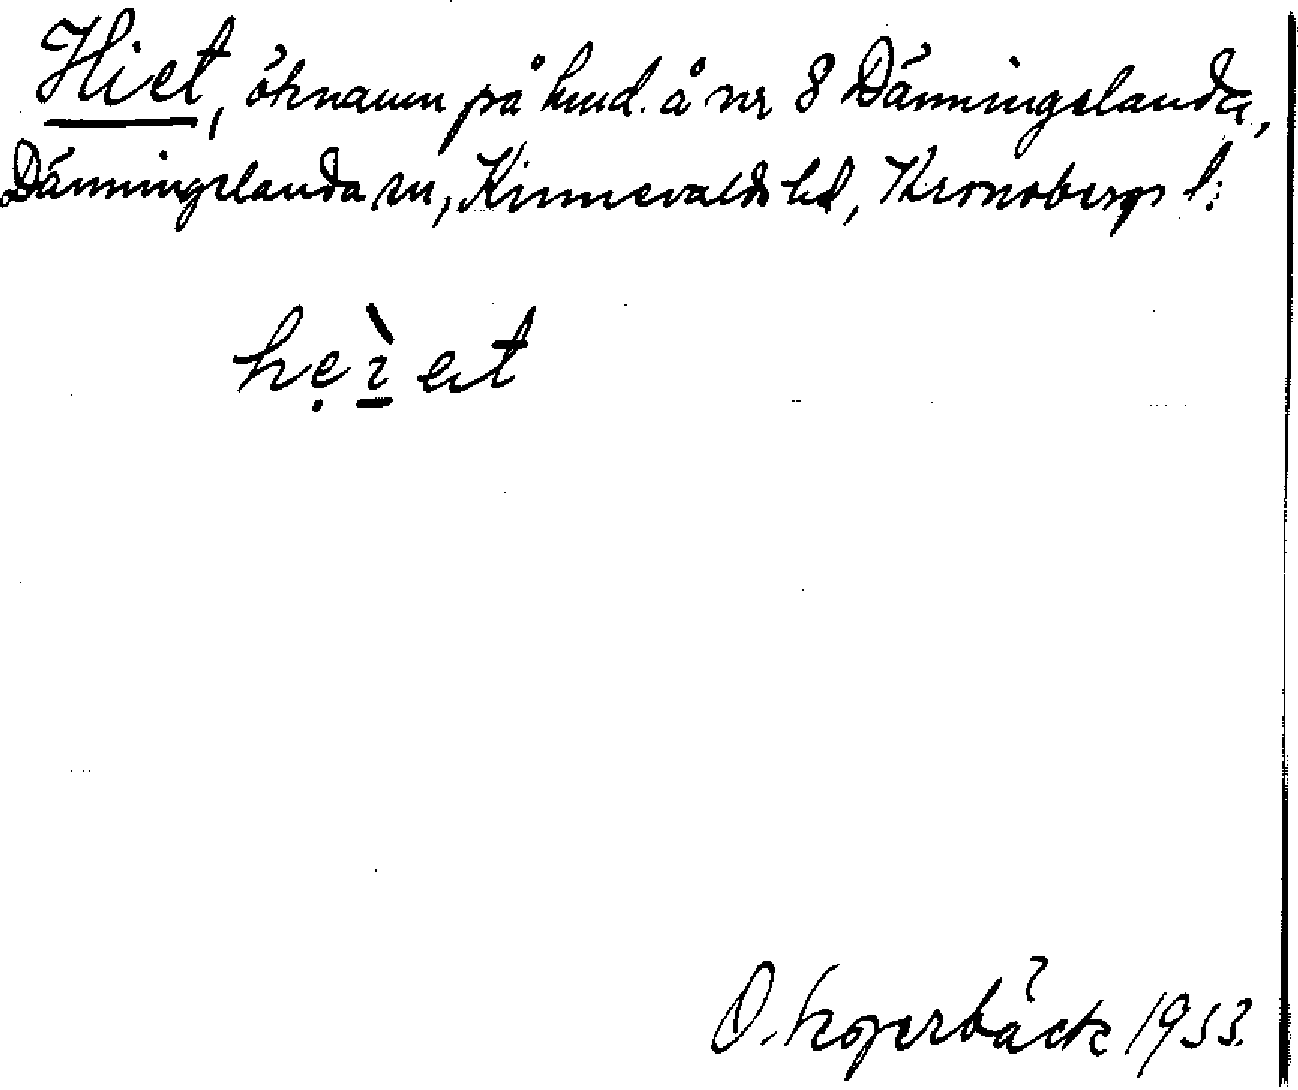 Hiet, öknamn på hmd. å nr 8 Dänningelanda,
Dänningelanda sn, Kinnevalds hd, Kronobergs l:
O. 1953.